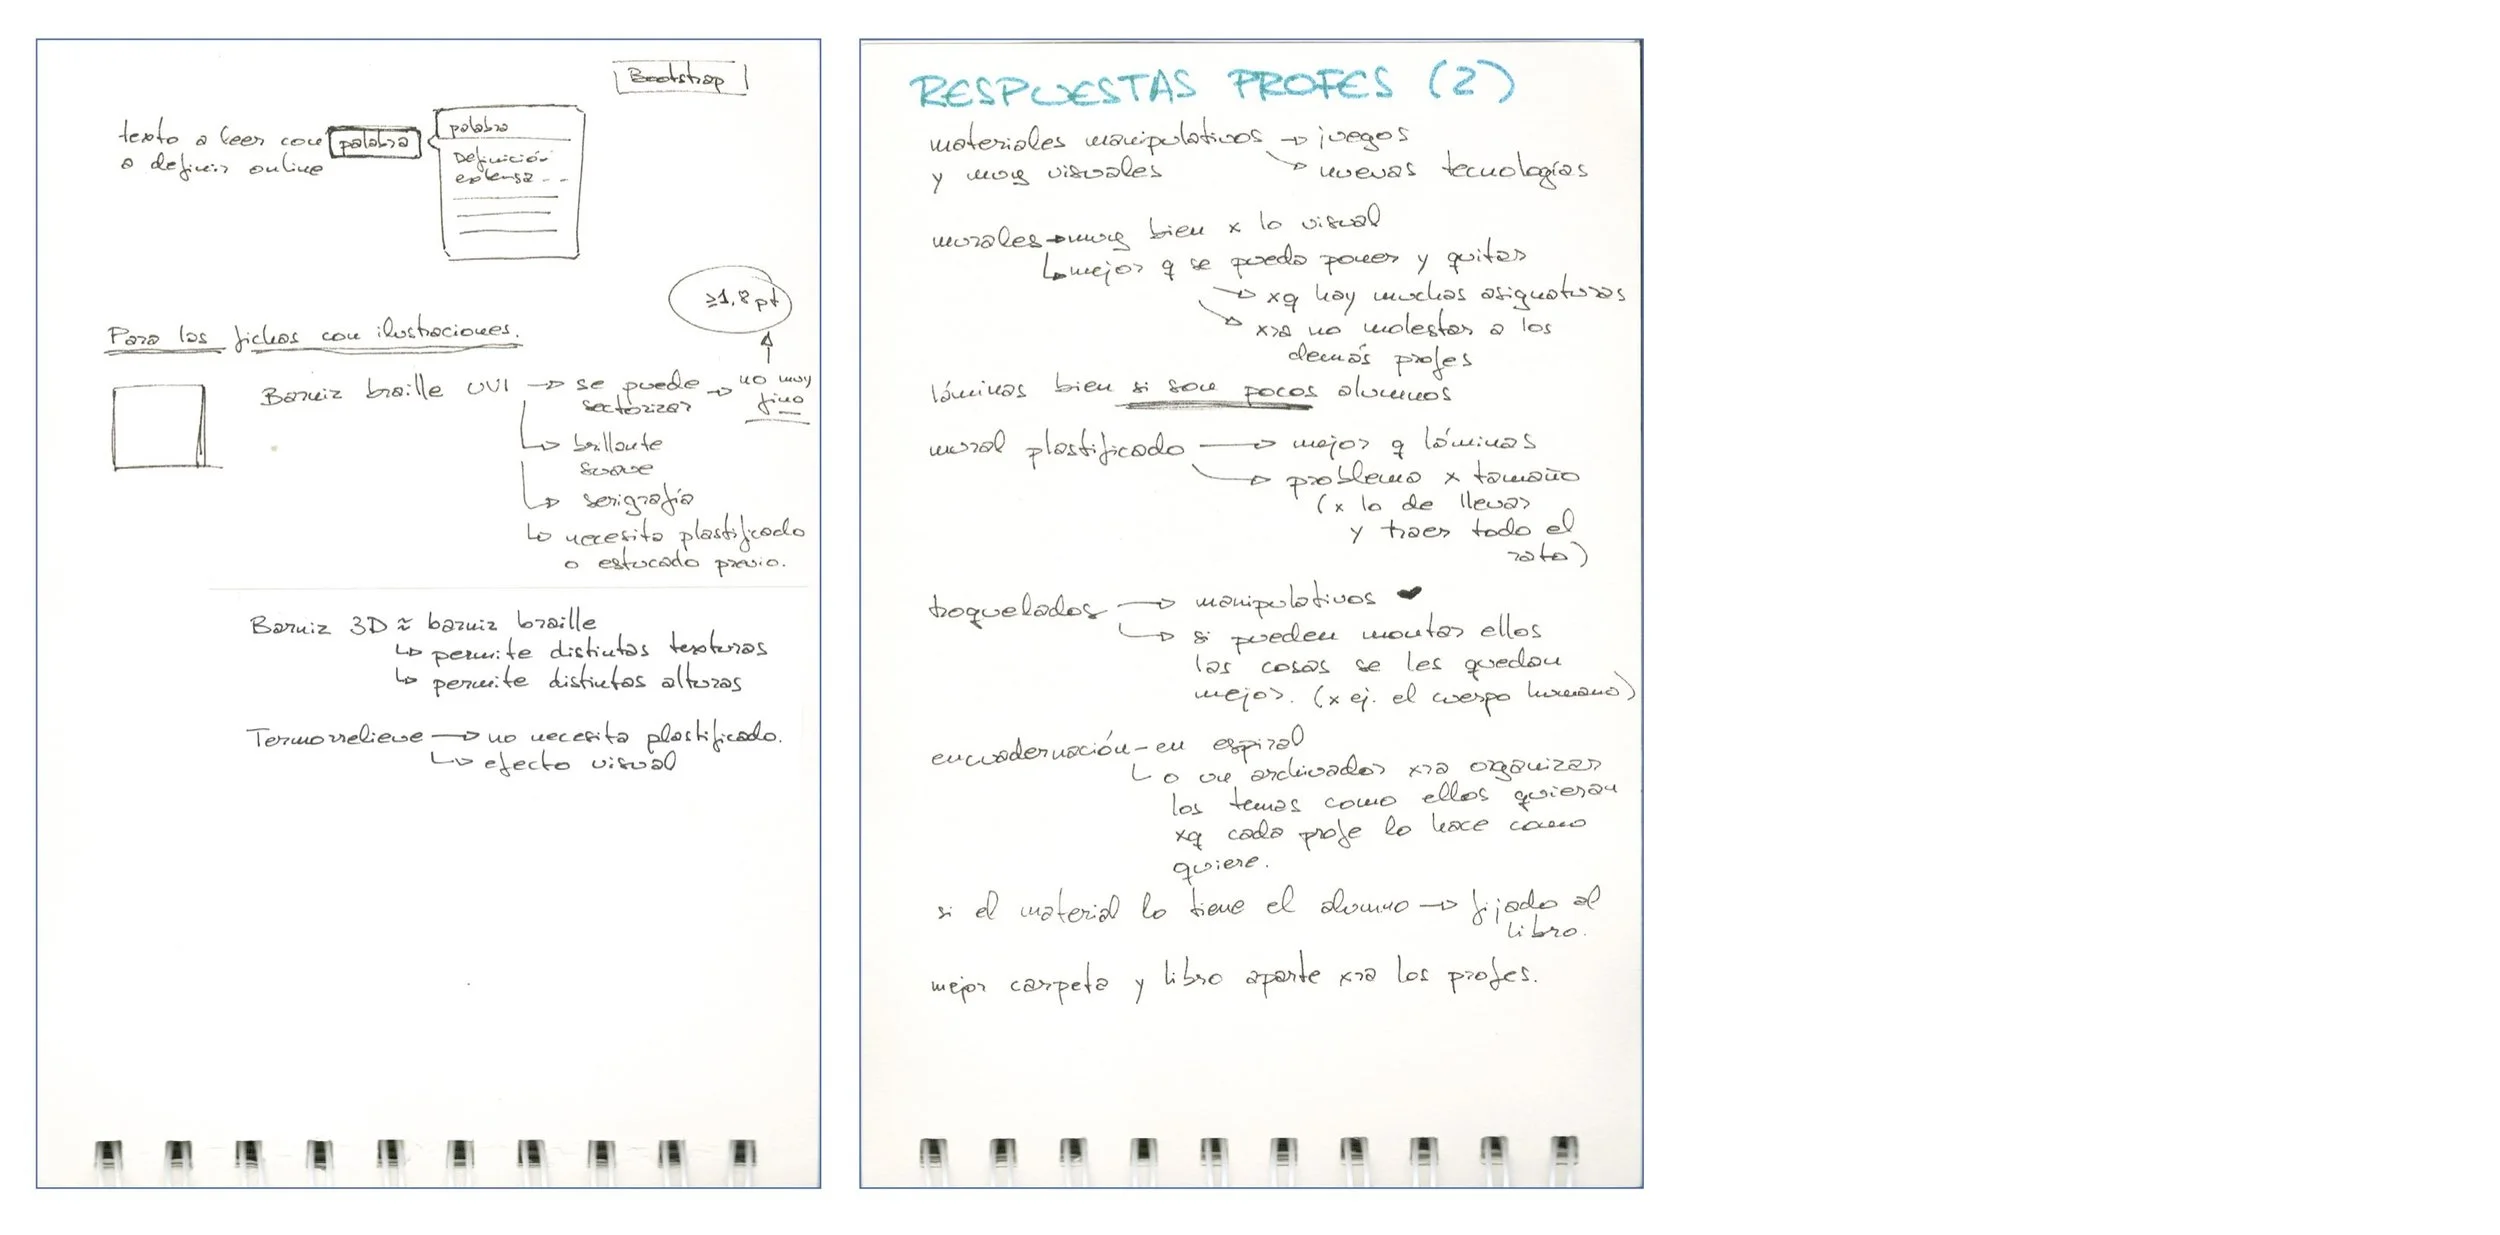 Bootstrap
texto a leer con palabra
a definir online
palabra
Definición
extensa...
≥1,8 pt
Para las fichas con ilustraciones.
Barniz braille UVI → se puede → no muy
sectorizar fino
↳ brillante
suave
↳ serigrafía
↳ necesita plastificado
o estucado previo.
Barniz 3D ≈ barniz braille
↳ permite distintas texturas
↳ permite distintas alturas
Termorrelieve → no necesita plastificado.
↳ efecto visual
RESPUESTAS PROFES (2)
materiales manipulativos → juegos
y muy visuales → nuevas tecnologías
murales → muy bien x lo visual
↳ mejor q se pueda poner y quitar
→ xq hay muchas asignaturas
→ xra no molestar a los
demás profes
láminas bien si son pocos alumnos
mural plastificado → mejor q láminas
→ problema x tamaño
(x lo de llevar
y traer todo el
rato)
troquelados → manipulativos ♥
↳ si pueden montar ellos
las cosas se les quedan
mejor. (x ej. el cuerpo humano)
encuadernación - en espiral
↳ o un archivador xra organizar
los temas como ellos quieran
xq cada profe lo hace como
quiere.
si el material lo tiene el alumno → fijado al
libro.
mejor carpeta y libro aparte xra los profes.